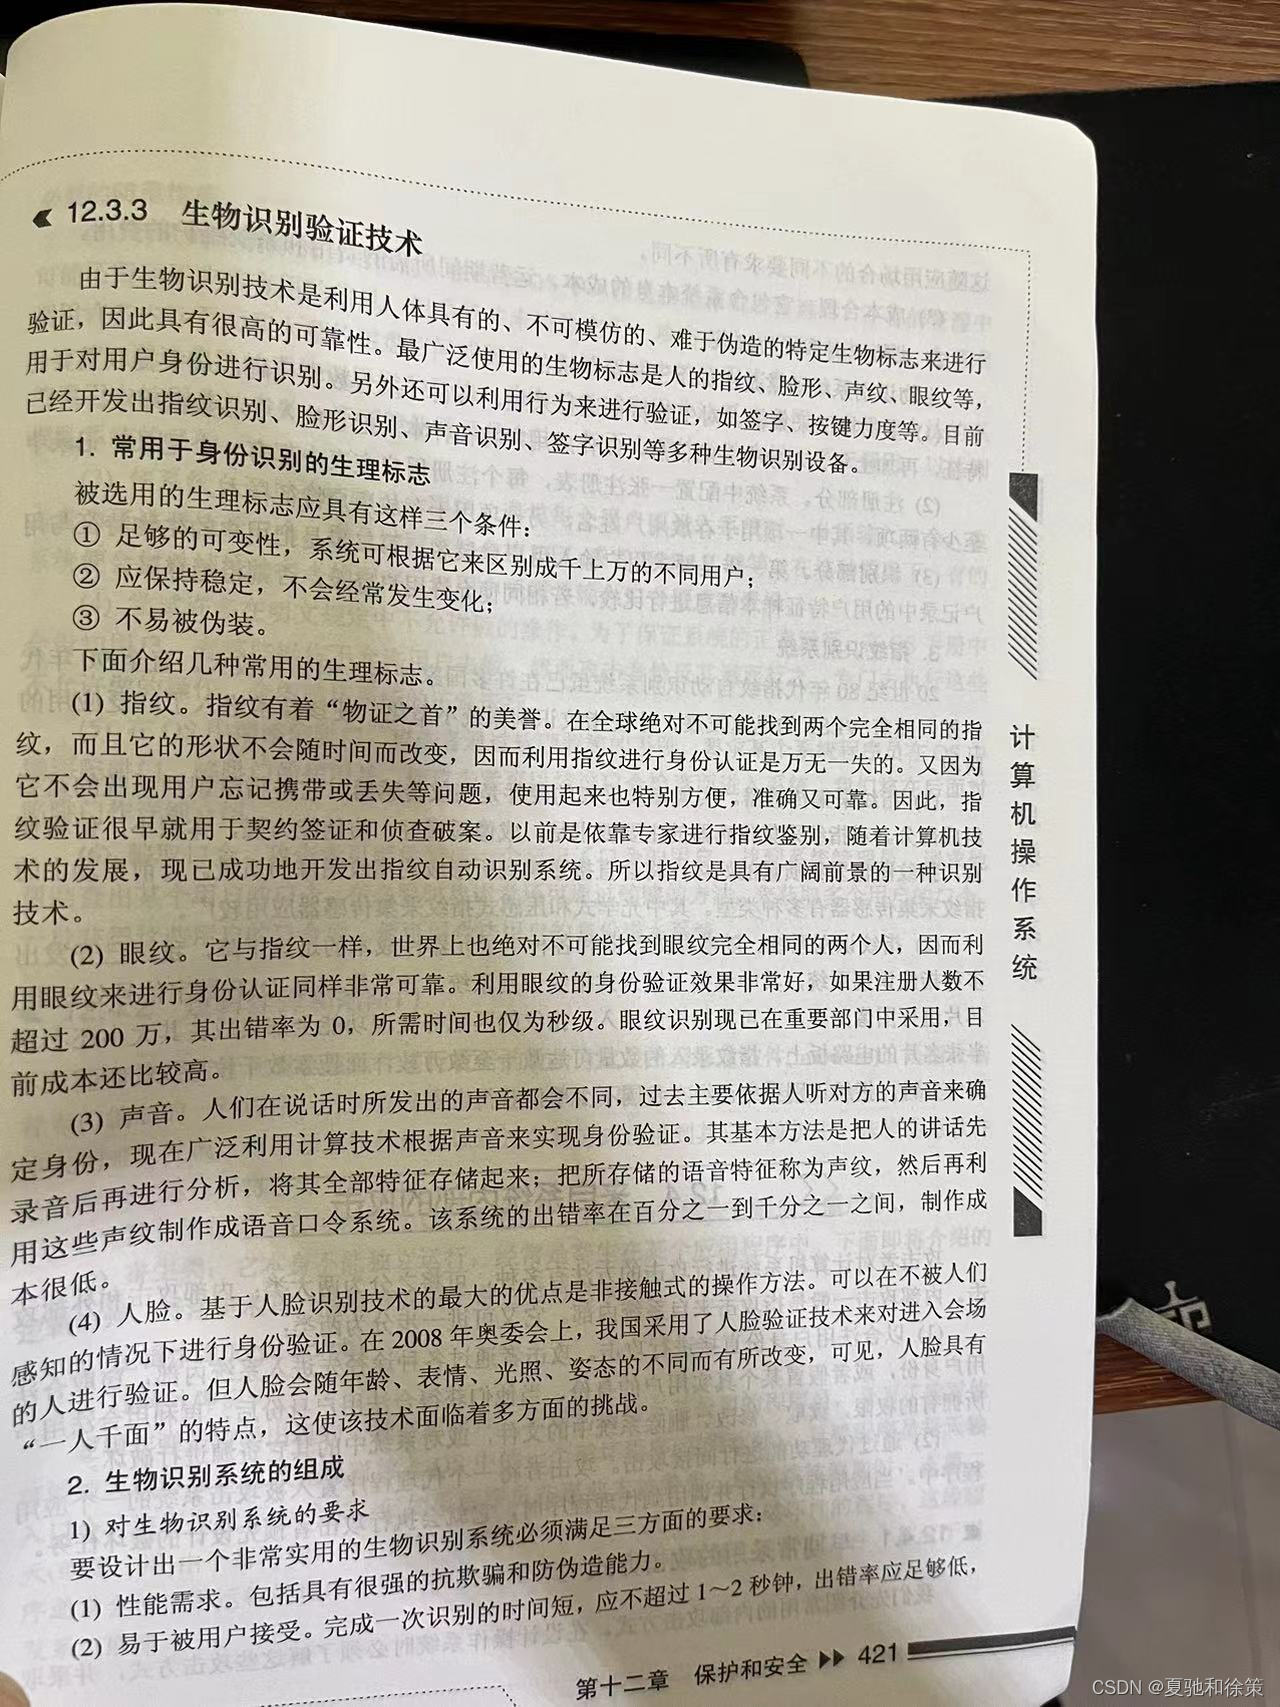 12.3.3 生物识别验证技术
由于生物识别技术是利用人体具有的、不可模仿的、难于伪造的特定生物标志来进行
验证，因此具有很高的可靠性。最广泛使用的生物标志是人的指纹、脸形、声纹、眼纹等，
用于对用户身份进行识别。另外还可以利用行为来进行验证，如签字、按键力度等。目前
已经开发出指纹识别、脸形识别、声音识别、签字识别等多种生物识别设备。
1. 常用于身份识别的生理标志
被选用的生理标志应具有这样三个条件：
① 足够的可变性，系统可根据它来区别成千上万的不同用户；
② 应保持稳定，不会经常发生变化；
③ 不易被伪装。
下面介绍几种常用的生理标志。
(1) 指纹。指纹有着“物证之首”的美誉。在全球绝对不可能找到两个完全相同的指
纹，而且它的形状不会随时间而改变，因而利用指纹进行身份认证是万无一失的。又因为
它不会出现用户忘记携带或丢失等问题，使用起来也特别方便，准确又可靠。因此，指
纹验证很早就用于契约签证和侦查破案。以前是依靠专家进行指纹鉴别，随着计算机技
术的发展，现已成功地开发出指纹自动识别系统。所以指纹是具有广阔前景的一种识别
技术。
(2) 眼纹。它与指纹一样，世界上也绝对不可能找到眼纹完全相同的两个人，因而利
用眼纹来进行身份认证同样非常可靠。利用眼纹的身份验证效果非常好，如果注册人数不
超过 200 万，其出错率为 0，所需时间也仅为秒级。眼纹识别现已在重要部门中采用，目
前成本还比较高。
(3) 声音。人们在说话时所发出的声音都会不同，过去主要依据人听对方的声音来确
定身份，现在广泛利用计算技术根据声音来实现身份验证。其基本方法是把人的讲话先
录音后再进行分析，将其全部特征存储起来；把所存储的语音特征称为声纹，然后再利
用这些声纹制作成语音口令系统。该系统的出错率在百分之一到千分之一之间，制作成
本很低。
(4) 人脸。基于人脸识别技术的最大的优点是非接触式的操作方法。可以在不被人们
感知的情况下进行身份验证。在 2008 年奥委会上，我国采用了人脸验证技术来对进入会场
的人进行验证。但人脸会随年龄、表情、光照、姿态的不同而有所改变，可见，人脸具有
“一人千面”的特点，这使该技术面临着多方面的挑战。
2. 生物识别系统的组成
1) 对生物识别系统的要求
要设计出一个非常实用的生物识别系统必须满足三方面的要求：
(1) 性能需求。包括具有很强的抗欺骗和防伪造能力。
(2) 易于被用户接受。完成一次识别的时间短，应不超过 1～2 秒钟，出错率应足够低，
第十二章 保护和安全 421
计算机操作系统
CSDN @夏驰和徐策